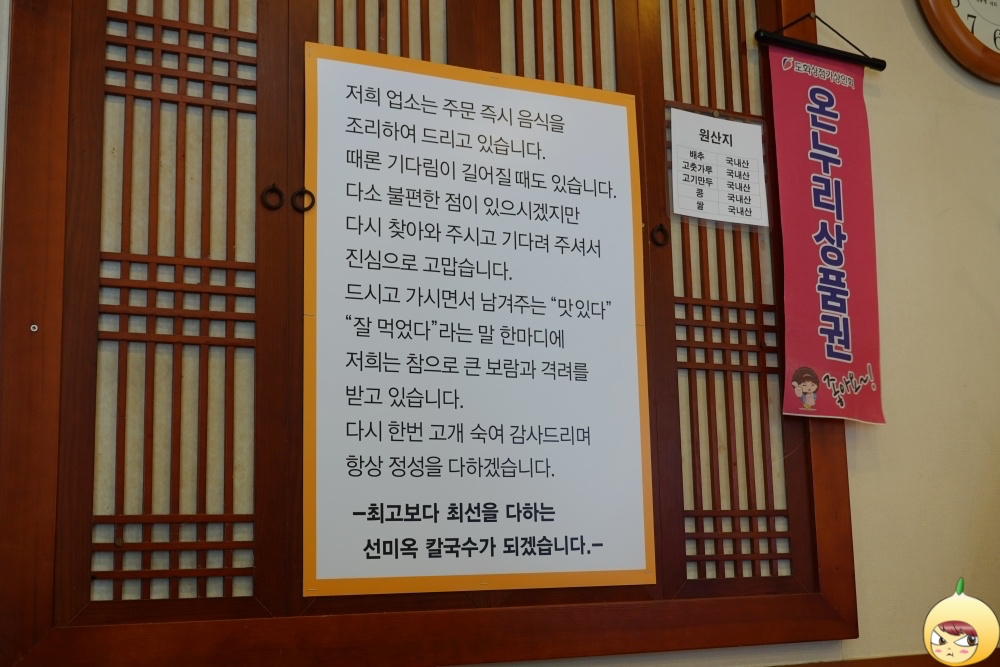 저희 업소는 주문 즉시 음식을
조리하여 드리고 있습니다.
때론 기다림이 길어질 때도 있습니다.
다소 불편한 점이 있으시겠지만
다시 찾아와 주시고 기다려 주셔서
진심으로 고맙습니다.
드시고 가시면서 남겨주는 “맛있다”
“잘 먹었다”라는 말 한마디에
저희는 참으로 큰 보람과 격려를
받고 있습니다.
다시 한번 고개 숙여 감사드리며
항상 정성을 다하겠습니다.
–최고보다 최선을 다하는
선미옥 칼국수가 되겠습니다.–
원산지
배추 국내산
고춧가루 국내산
고기만두 국내산
콩 국내산
쌀 국내산
도화상점가상인회
온누리상품권
좋아요~!
7
6